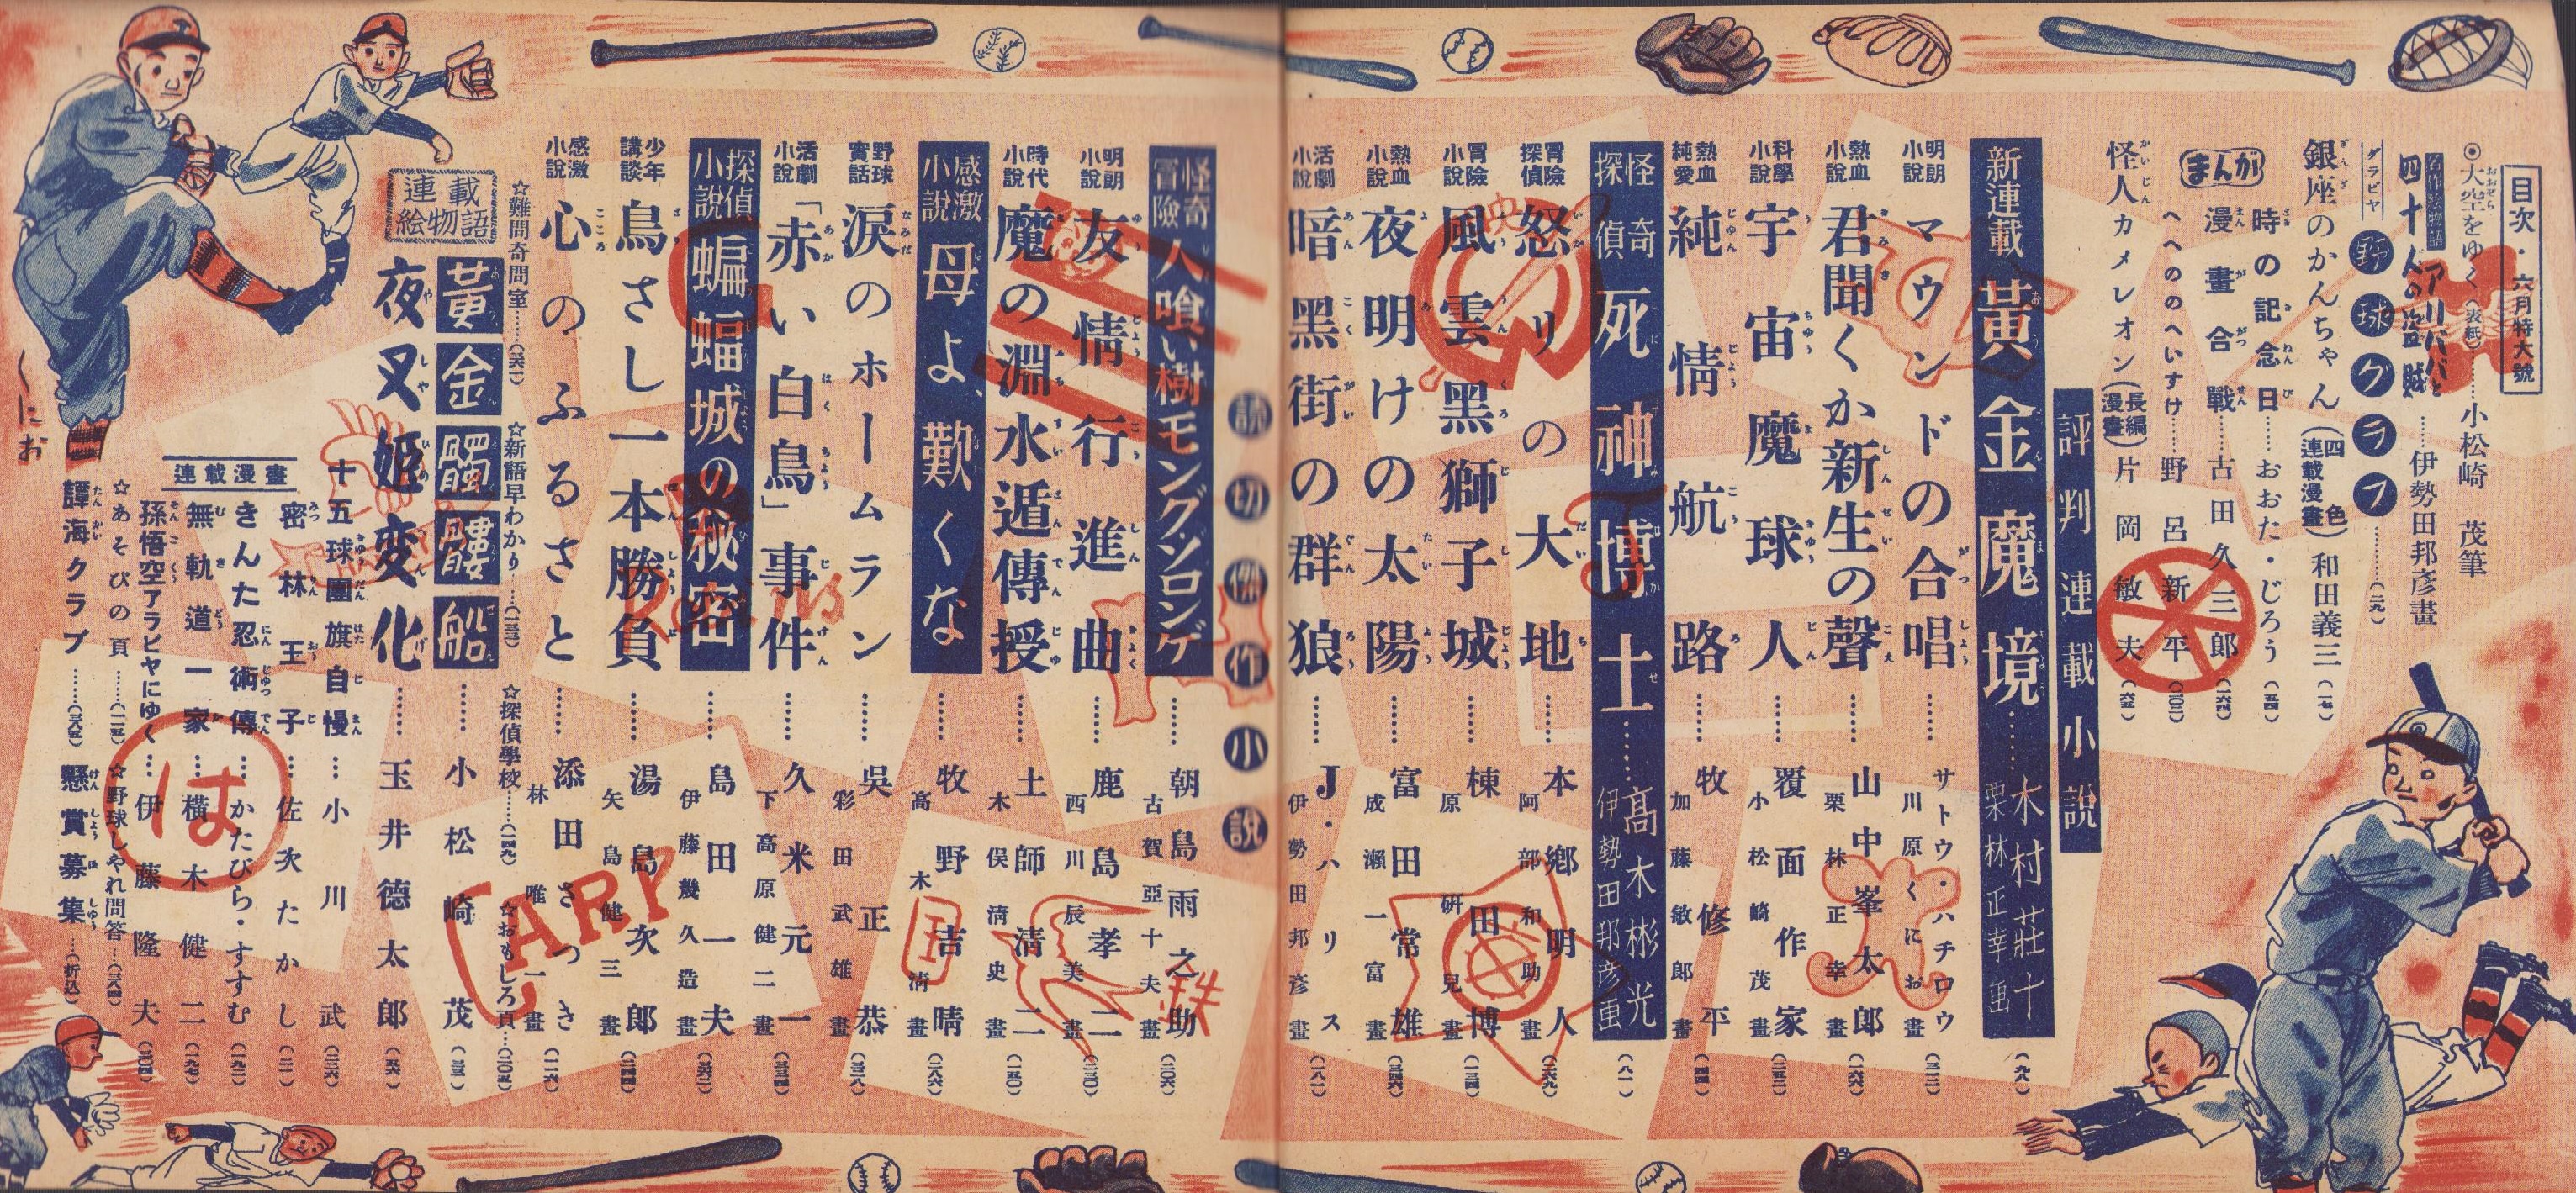 目次・六月特大號
◎大空をゆく(表紙)……小松崎 茂筆
名作絵物語 アリババと四十人の盗賊……伊勢田邦彦畫
グラビヤ 野球グラフ…………(一九)
銀座のかんちゃん(四色連載漫畫)和田義三(一七)
まんが
時の記念日……おおた・じろう(五四)
漫畫合戰……古田久三郎(一六四)
へへののへいすけ……野呂新平(一〇二)
怪人カメレオン(長編漫畫)片岡敏夫(六五)
評判連載小説
新連載 黄金魔境……木村莊十 栗林正幸画(九八)
明朗小說 マウンドの合唱……サトウ・ハチロウ 川原くにお畫
熱血小說 君聞くか新生の聲……山中峯太郎 栗林正幸畫(一六六)
科學小說 宇宙魔球人……覆面作家 小松崎茂畫
熱血純愛 純情航路……牧修平 加藤敏郎畫
怪奇探偵 死神博士……高木彬光 伊勢田邦彦画(八一)
冒險探偵 怒りの大地……本郷明人 阿部和助畫
冒險小說 風雲黑獅子城……棟田博 原研兒畫
熱血小說 夜明けの太陽……富田常雄 成瀬一富畫
活劇小說 暗黑街の群狼……J・ハリス 伊勢田邦彦畫(一八一)
読切傑作小説
怪奇冒險 人喰い樹モングソロング……朝島雨之助 古賀亞十夫畫(一〇六)
明朗小說 友情行進曲……鹿島孝二 西川辰美畫
時代小說 魔の淵水遁傳授……土師淸二 木俣淸史畫(一五〇)
感激小說 母よ、歎くな……牧野吉晴 高木淸畫(一八六)
野球實話 涙のホームラン……吳正恭 彩田武雄畫
活劇小說 「赤い白鳥」事件……久米元一 下高原健二畫
探偵小說 蝙蝠城の秘密……島田一夫 伊藤幾久造畫
少年講談 鳥さし一本勝負……湯島次郎 矢島健三畫
感激小說 心のふるさと……添田さつき 林唯一畫(一一六)
☆難問奇問室……
☆新語早わかり……
☆探偵學校……
☆おもしろ頁……(一〇五)
連載絵物語
黄金髑髏船……小松崎茂
夜叉姫変化……玉井德太郎
十五球團旗自慢……小川武
連載漫畫
密林王子……佐次たかし
きんた忍術傳……かたびら・すすむ(一九二)
無軌道一家……横木健二
孫悟空アラビヤにゆく……伊藤隆夫
☆あそびの頁……(一二五)
☆野球しやれ問答……
譚海クラブ……
懸賞募集……(折込)
くにお
は
CARP
Robins
鉄